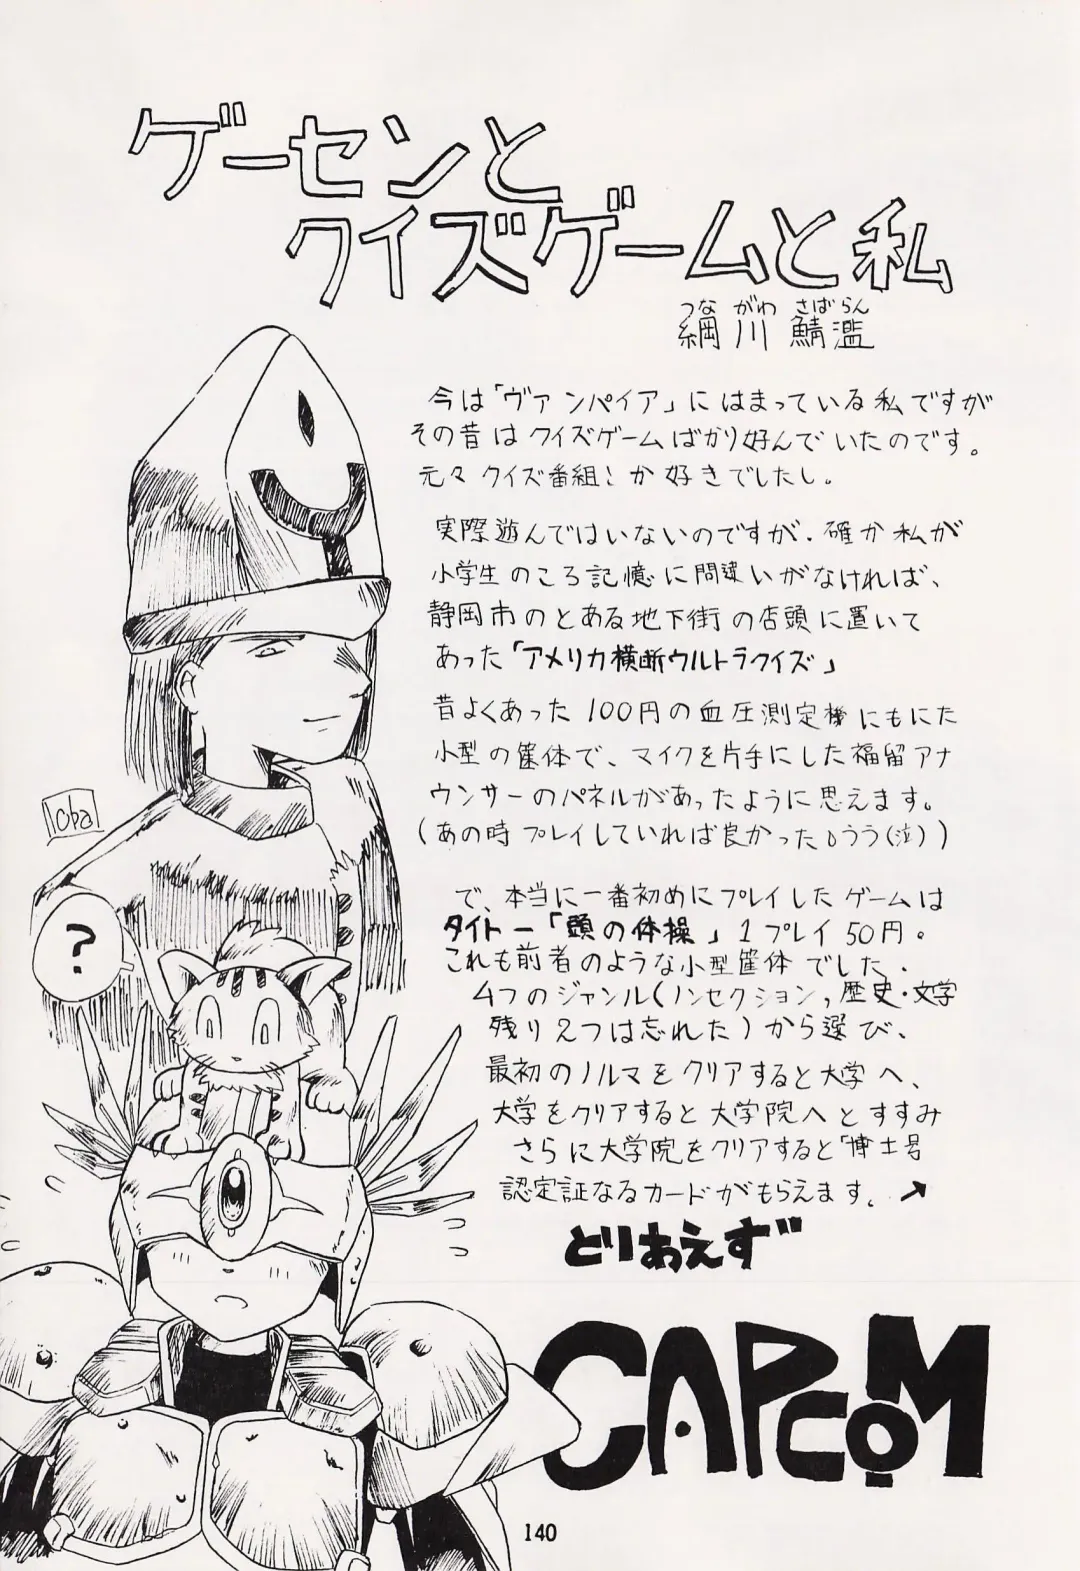 ゲーセンと
クイズゲームと私
つな がわ さばらん
綱川 鯖濫
今は「ヴァンパイア」にはまっている私ですが
その昔はクイズゲームばかり好んでいたのです。
元々クイズ番組が好きでしたし。
実際遊んではいないのですが、確か私が
小学生のころ記憶に間違いがなければ、
静岡市のとある地下街の店頭に置いて
あった「アメリカ横断ウルトラクイズ」
昔よくあった100円の血圧測定機にもにた
小型の筐体で、マイクを片手にした福留アナ
ウンサーのパネルがあったように思えます。
(あの時プレイしていれば良かったようう(泣))
で、本当に一番初めにプレイしたゲームは
タイトー「頭の体操」1プレイ50円。
これも前者のような小型筐体でした。
4つのジャンル(ノンセクション,歴史・文学
残り2つは忘れた)から選び、
最初のノルマをクリアすると大学へ、
大学をクリアすると大学院へとすすみ
さらに大学院をクリアすると「博士号
認定証なるカードがもらえます。
とりあえず
?
CAPCOM
140